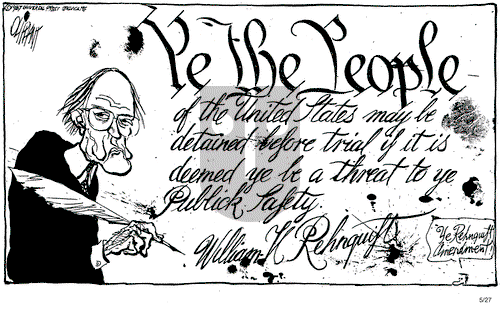 ©1987 UNIVERSAL PRESS SYNDICATE
OLIPHANT
We the People
of the United States may be
detained before trial if it is
deemed ye be a threat to ye
Publick Safety.
William H Rehnquist
Ye Rehnquist
Amendment!
5/27